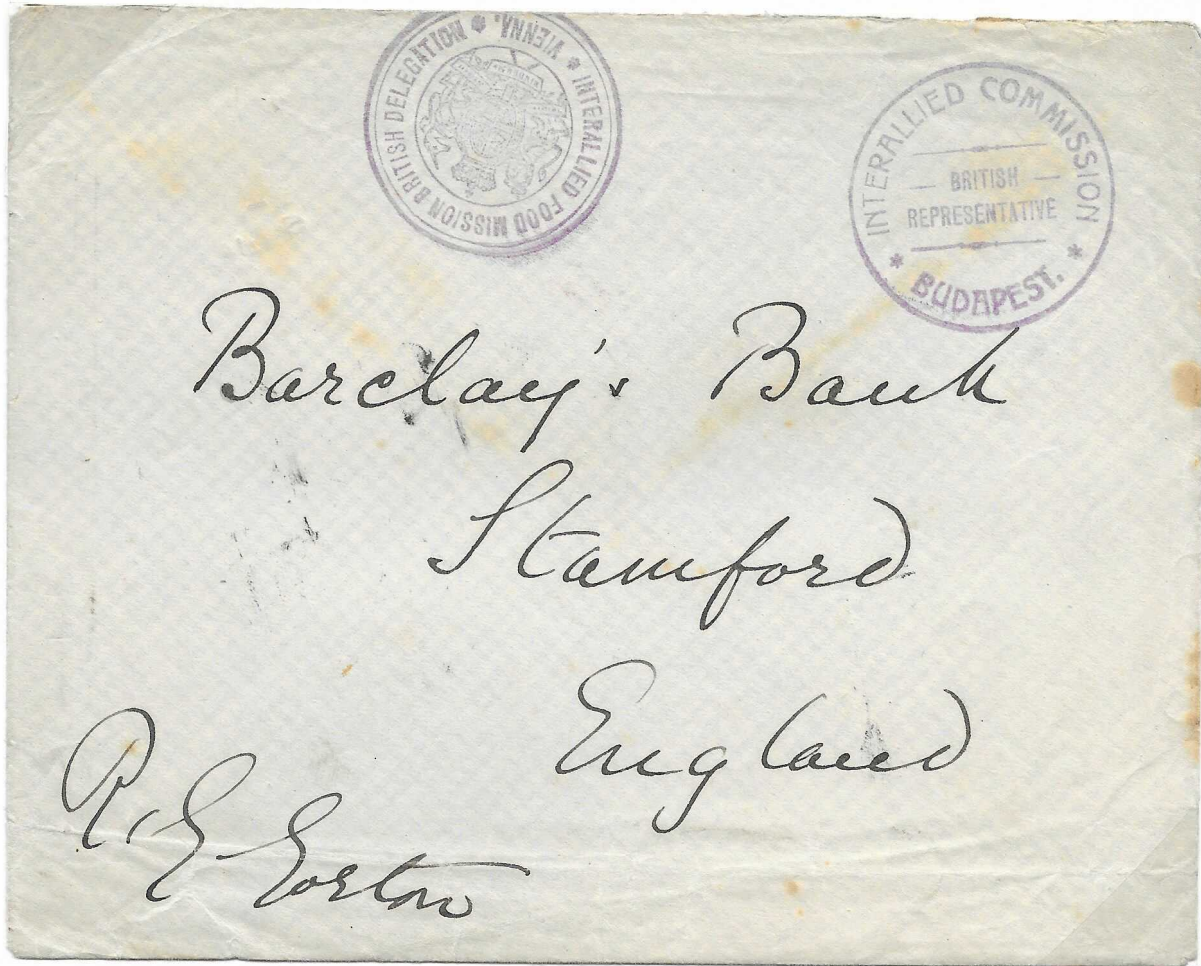 INTERALLIED FOOD MISSION BRITISH DELEGATION * VIENNA. *
INTERALLIED COMMISSION
BRITISH
REPRESENTATIVE
* BUDAPEST. *
Barclay's Bank
Stamford
England
R. E.